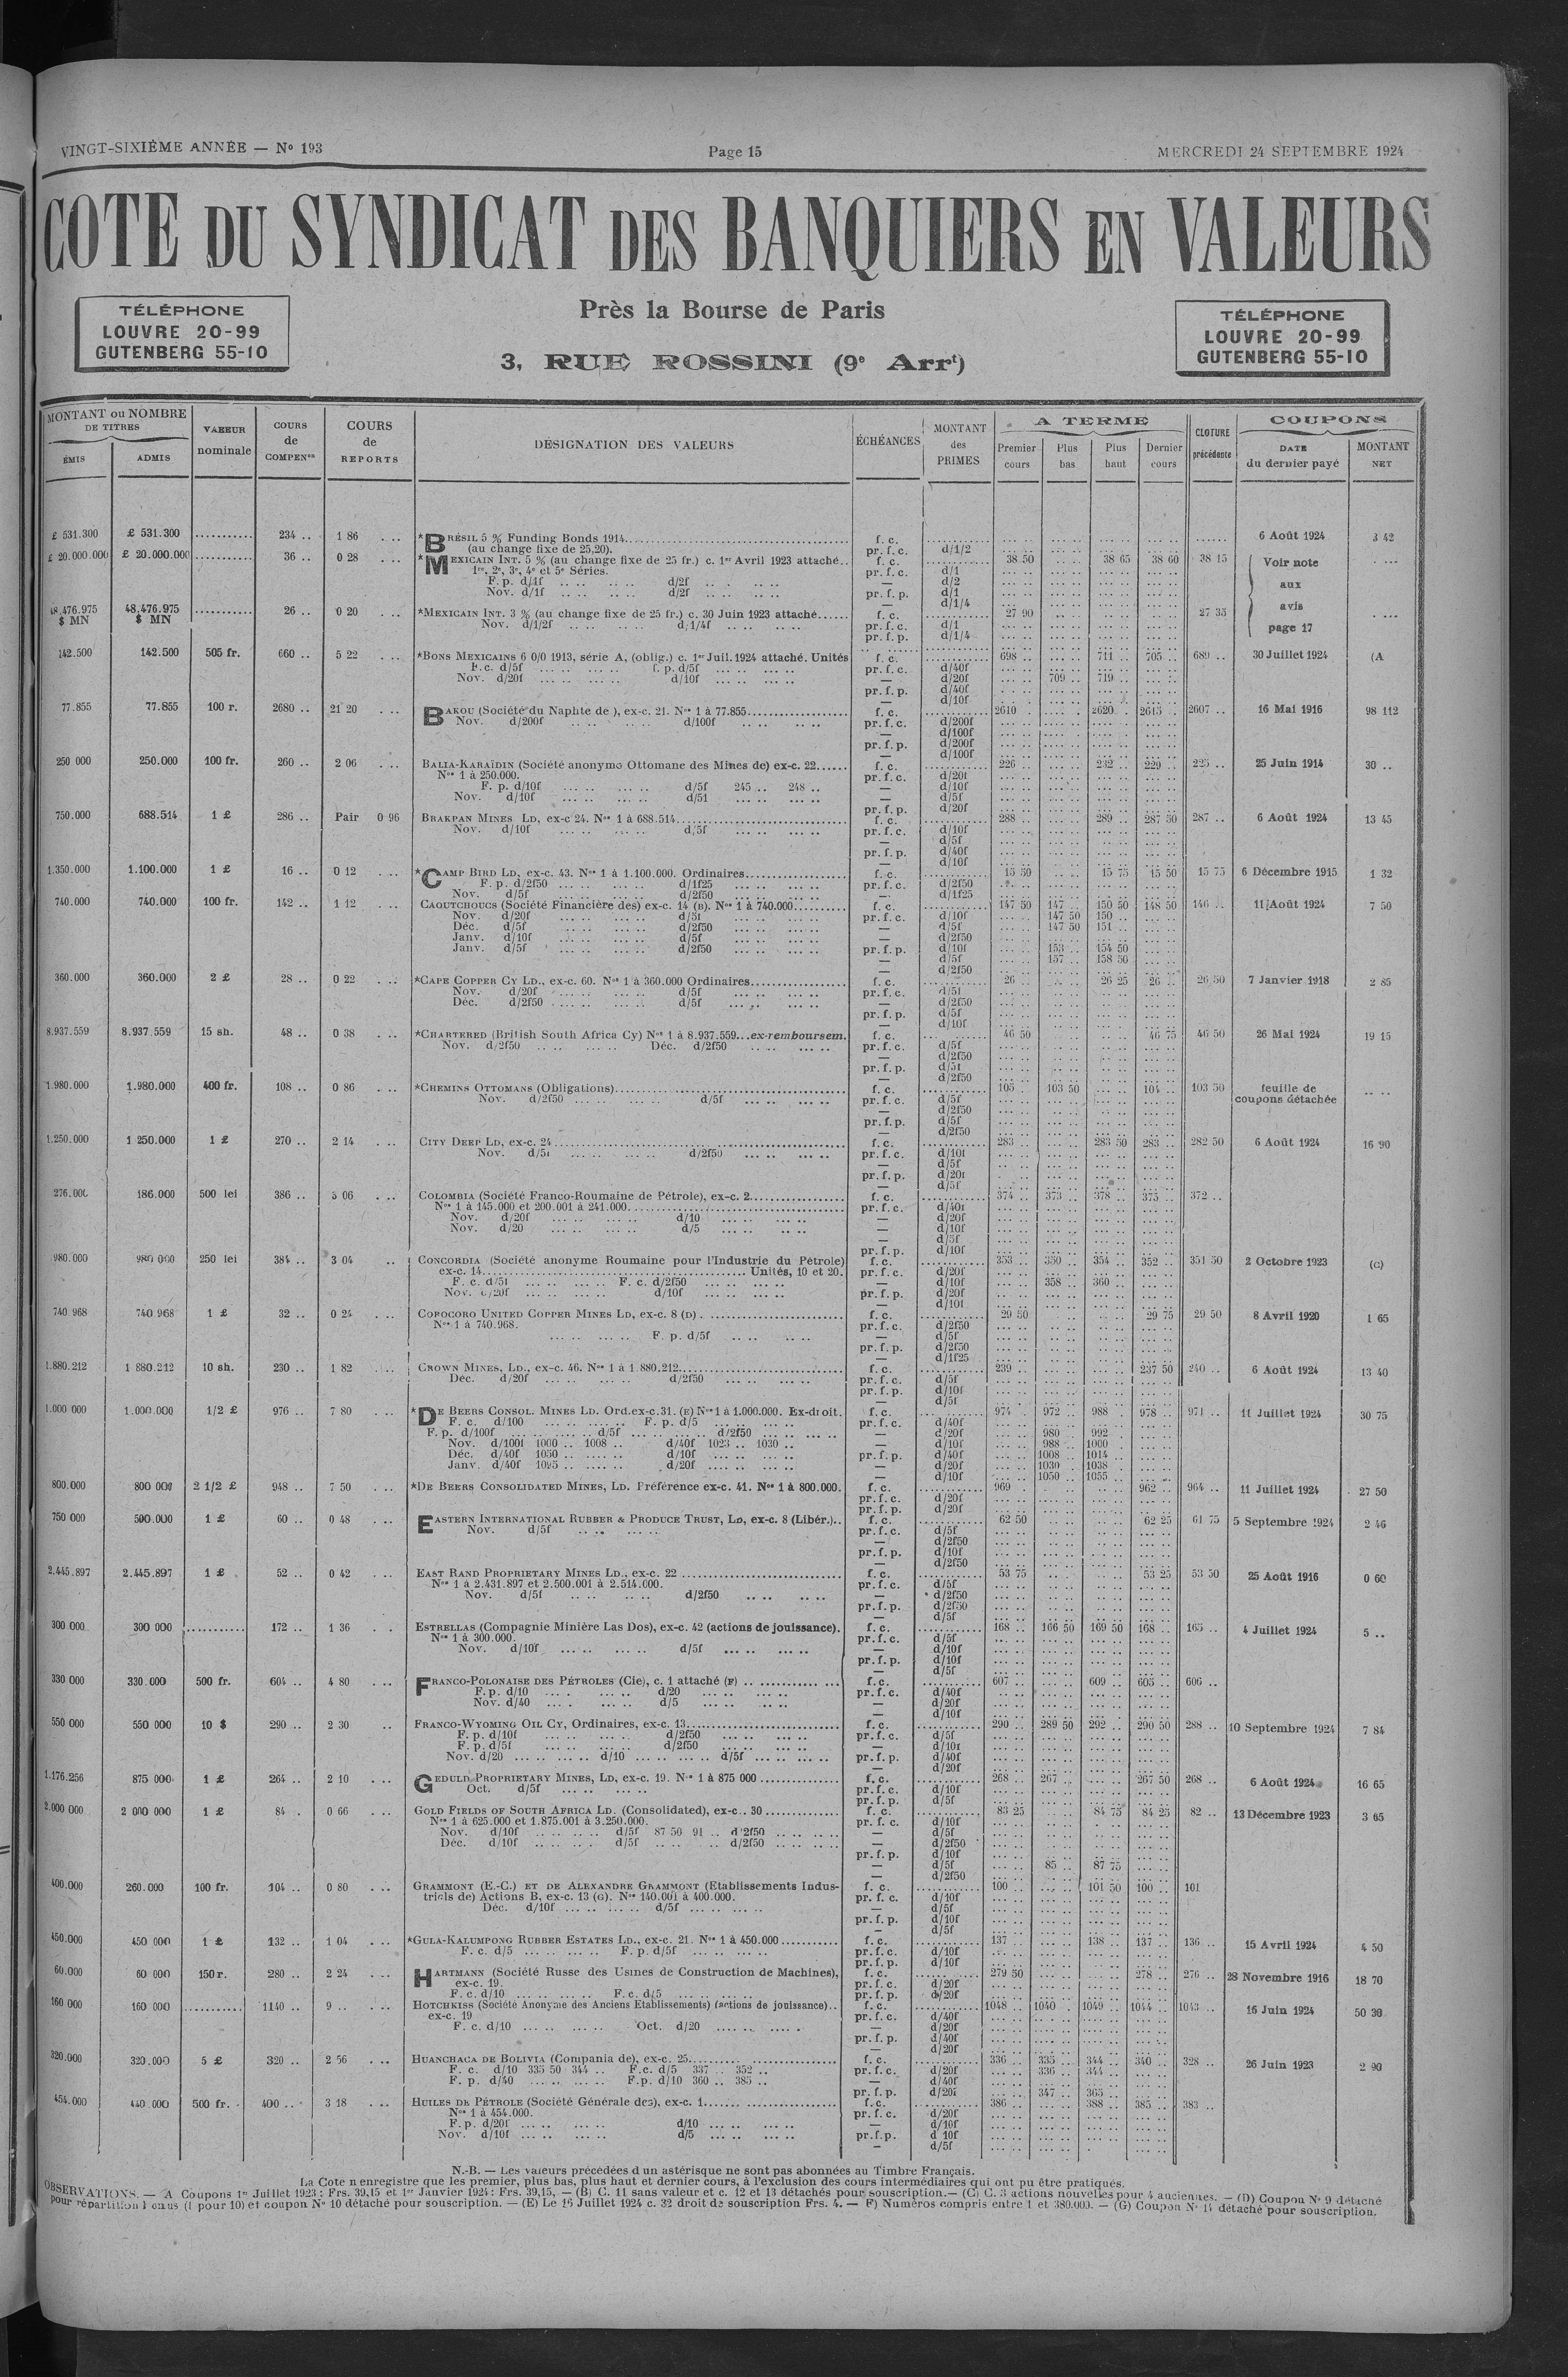 VINGT-SIXIÈME ANNÉE — Nº 193 Page 15 MERCREDI 24 SEPTEMBRE 1924
COTE DU SYNDICAT DES BANQUIERS EN VALEURS
TÉLÉPHONE
LOUVRE 20-99
GUTENBERG 55-10
Près la Bourse de Paris
3, RUE ROSSINI (9e Arrt)
TÉLÉPHONE
LOUVRE 20-99
GUTENBERG 55-10
MONTANT ou NOMBRE DE TITRES
ÉMIS ADMIS
VALEUR nominale
COURS de COMPENon
COURS de REPORTS
DÉSIGNATION DES VALEURS
ÉCHÉANCES
MONTANT des PRIMES
A TERME
Premier cours Plus bas Plus haut Dernier cours
CLOTURE précédente
COUPONS
DATE du dernier payé MONTANT NET
£ 531.300 £ 531.300 ........... 234 .. 1 86 *BRÉSIL 5 % Funding Bonds 1914 f. c. 6 Août 1924 3 42
(au change fixe de 25,20). pr. f. c. d/1/2
£ 20.000.000 £ 20.000.000 ........... 36 .. 0 28 *MEXICAIN INT. 5 % (au change fixe de 25 fr.) c. 1er Avril 1923 attaché.. f. c. 38 50 38 65 38 60 38 15 Voir note aux avis page 17
1re, 2e, 3e, 4e et 5e Séries. pr. f. c. d/1
F. p. d/1f d/2f — d/2
Nov. d/1f d/2f pr. f. p. d/1
— d/1/4
48.476.975 $ MN 48.476.975 $ MN ........... 26 .. 0 20 *MEXICAIN INT. 3 % (au change fixe de 25 fr.) c. 30 Juin 1923 attaché...... f. c. 27 90 27 35
Nov. d/1/2f d/1/4f pr. f. c. d/1
pr. f. p. d/1/4
142.500 142.500 505 fr. 660 .. 5 22 *BONS MEXICAINS 6 0/0 1913, série A, (oblig.) c. 1er Juil. 1924 attaché. Unités f. c. 698 .. 711 .. 705 .. 689 .. 30 Juillet 1924 (A
F. c. d/5f f. p. d/5f pr. f. c. d/40f
Nov. d/20f d/10f — d/20f 709 .. 719 ..
pr. f. p. d/40f
— d/10f
77.855 77.855 100 r. 2680 .. 21 20 BAKOU (Société du Naphte de ), ex-c. 21. Nos 1 à 77.855 f. c. 2610 .. 2620 .. 2615 .. 2607 .. 16 Mai 1916 98 112
Nov. d/200f d/100f pr. f. c. d/200f
— d/100f
pr. f. p. d/200f
— d/100f
250 000 250.000 100 fr. 260 .. 2 06 BALIA-KARAÏDIN (Société anonyme Ottomane des Mines de) ex-c. 22...... f. c. 226 .. 232 .. 229 .. 225 .. 25 Juin 1914 30 ..
Nos 1 à 250.000. pr. f. c. d/20f
F. p. d/10f d/5f 245 .. 248 .. — d/10f
Nov. d/10f d/51 — d/5f
pr. f. p. d/20f
750.000 688.514 1 £ 286 .. Pair 0 96 BRAKPAN MINES LD, ex-c 24. Nos 1 à 688.514 f. c. 288 .. 289 .. 287 50 287 .. 6 Août 1924 13 45
Nov. d/10f d/5f pr. f. c. d/10f
— d/5f
pr. f. p. d/40f
— d/10f
1.350.000 1.100.000 1 £ 16 .. 0 12 *CAMP BIRD LD, ex-c. 43. Nos 1 à 1.100.000. Ordinaires f. c. 15 50 15 75 15 50 15 75 6 Décembre 1915 1 32
F. p. d/2f50 d/1f25 pr. f. c. d/2f50
Nov. d/5f d/2f50 — d/1f25
740.000 740.000 100 fr. 142 .. 1 12 CAOUTCHOUCS (Société Financière des) ex-c. 14 (B). Nos 1 à 740.000 f. c. 147 50 147 .. 150 50 148 50 146 .. 11 Août 1924 7 50
Nov. d/20f d/5f pr. f. c. d/10f 147 50 150 ..
Déc. d/5f d/2f50 — d/5f 147 50 151 ..
Janv. d/10f d/5f — d/2f50
Janv. d/5f d/2f50 pr. f. p. d/10f 153 .. 154 50
— d/5f 157 .. 158 50
— d/2f50
360.000 360.000 2 £ 28 .. 0 22 *CAPE COPPER CY LD., ex-c. 60. Nos 1 à 360.000 Ordinaires f. c. 26 .. 26 25 26 .. 26 50 7 Janvier 1918 2 85
Nov. d/20f d/5f pr. f. c. d/5f
Déc. d/2f50 d/5f — d/2f50
pr. f. p. d/5f
— d/10f
8.937.559 8.937.559 15 sh. 48 .. 0 38 *CHARTERED (British South Africa Cy) Nos 1 à 8.937.559...ex-remboursem. f. c. 46 50 46 75 46 50 26 Mai 1924 19 15
Nov. d/2f50 Déc. d/2f50 pr. f. c. d/5f
— d/2f50
pr. f. p. d/5f
— d/2f50
1.980.000 1.980.000 400 fr. 108 .. 0 86 *CHEMINS OTTOMANS (Obligations) f. c. 105 .. 103 50 104 .. 103 50 feuille de coupons détachée
Nov. d/2f50 d/5f pr. f. c. d/5f
— d/2f50
pr. f. p. d/5f
— d/2f50
1.250.000 1 250.000 1 £ 270 .. 2 14 CITY DEEP LD, ex-c. 24 f. c. 283 .. 283 50 283 .. 282 50 6 Août 1924 16 90
Nov. d/5f d/2f50 pr. f. c. d/10f
— d/5f
pr. f. p. d/20f
— d/5f
276.000 186.000 500 lei 386 .. 3 06 COLOMBIA (Société Franco-Roumaine de Pétrole), ex-c. 2 f. c. 374 .. 373 .. 378 .. 375 .. 372 ..
Nos 1 à 145.000 et 200.001 à 241.000 pr. f. c. d/40f
Nov. d/20f d/10 — d/20f
Nov. d/20 d/5 — d/10f
— d/5f
pr. f. p. d/10f
980.000 980 000 250 lei 384 .. 3 04 CONCORDIA (Société anonyme Roumaine pour l'Industrie du Pétrole) f. c. 353 .. 350 .. 354 .. 352 .. 351 50 2 Octobre 1923 (C)
ex-c. 14 Unités, 10 et 20. pr. f. c. d/20f
F. c. d/5f F. c. d/2f50 — d/10f 358 .. 360 ..
Nov. d/20f d/10f pr. f. p. d/20f
— d/10f
740 968 740 968 1 £ 32 .. 0 24 COROCORO UNITED COPPER MINES LD, ex-c. 8 (D) f. c. 29 50 29 75 29 50 8 Avril 1920 1 65
Nos 1 à 740.968. pr. f. c. d/2f50
F. p. d/5f — d/5f
pr. f. p. d/2f50
— d/1f25
1.880.212 1 880.212 10 sh. 230 .. 1 82 CROWN MINES, LD., ex-c. 46. Nos 1 à 1.880.212 f. c. 239 .. 237 50 240 .. 6 Août 1924 13 40
Déc. d/20f d/2f50 pr. f. c. d/5f
pr. f. p. d/10f
— d/5f
1.000 000 1.000.000 1/2 £ 976 .. 7 80 *DE BEERS CONSOL. MINES LD. Ord. ex-c. 31. (E) Nos 1 à 1.000.000. Ex-droit. f. c. 974 .. 972 .. 988 .. 978 .. 971 .. 11 Juillet 1924 30 75
F. c. d/100 F. p. d/5 pr. f. c. d/40f
F. p. d/100f d/5f d/2f50 — d/20f 980 .. 992 ..
Nov. d/100f 1000 .. 1008 .. d/40f 1023 .. 1030 .. — d/10f 988 .. 1000 ..
Déc. d/40f 1050 .. d/10f pr. f. p. d/40f 1008 .. 1014 ..
Janv. d/40f 1095 .. d/20f — d/20f 1030 .. 1038 ..
— d/10f 1050 .. 1055 ..
800.000 800 000 2 1/2 £ 948 .. 7 50 *DE BEERS CONSOLIDATED MINES, LD. Préférence ex-c. 41. Nos 1 à 800.000. f. c. 969 .. 962 .. 964 .. 11 Juillet 1924 27 50
pr. f. c. d/20f
pr. f. p. d/20f
750 000 500.000 1 £ 60 .. 0 48 EASTERN INTERNATIONAL RUBBER & PRODUCE TRUST, LD, ex-c. 8 (Libér.).. f. c. 62 50 62 25 61 75 5 Septembre 1924 2 46
Nov. d/5f pr. f. c. d/5f
— d/2f50
pr. f. p. d/10f
— d/2f50
2.445.897 2.445.897 1 £ 52 .. 0 42 EAST RAND PROPRIETARY MINES LD., ex-c. 22 f. c. 53 75 53 25 53 50 25 Août 1916 0 60
Nos 1 à 2.431.897 et 2.500.001 à 2.514.000. pr. f. c. d/5f
Nov. d/5f d/2f50 — d/2f50
pr. f. p. d/2f50
— d/5f
300 000 300 000 ........... 172 .. 1 36 ESTRELLAS (Compagnie Minière Las Dos), ex-c. 42 (actions de jouissance). f. c. 168 .. 166 50 169 50 168 .. 165 .. 4 Juillet 1924 5 ..
Nos 1 à 300.000. pr. f. c. d/5f
Nov. d/10f d/5f — d/10f
pr. f. p. d/10f
— d/5f
330 000 330.000 500 fr. 604 .. 4 80 FRANCO-POLONAISE DES PÉTROLES (Cie), c. 1 attaché (F) f. c. 607 .. 609 .. 605 .. 606 ..
F. p. d/10 d/20 pr. f. c. d/40f
Nov. d/40 d/5 — d/20f
— d/10f
550 000 550 000 10 $ 290 .. 2 30 FRANCO-WYOMING OIL CY, Ordinaires, ex-c. 13 f. c. 290 .. 289 50 292 .. 290 50 288 .. 10 Septembre 1924 7 84
F. p. d/10f d/2f50 pr. f. c. d/5f
F. p. d/5f d/2f50 — d/10f
Nov. d/20 d/10 d/5f pr. f. p. d/40f
— d/20f
1.176.256 875 000 1 £ 264 .. 2 10 GEDULD PROPRIETARY MINES, LD, ex-c. 19. Nos 1 à 875 000 f. c. 268 .. 267 .. 267 50 268 .. 6 Août 1924 16 65
Oct. d/5f pr. f. c. d/10f
pr. f. p. d/5f
2.000 000 2 000 000 1 £ 84 . 0 66 GOLD FIELDS OF SOUTH AFRICA LD. (Consolidated), ex-c.. 30 f. c. 83 25 84 75 84 25 82 .. 13 Décembre 1923 3 65
Nos 1 à 625.000 et 1.875.001 à 3.250.000. pr. f. c. d/10f
Nov. d/10f d/5f 87 50 91 .. d/2f50 — d/5f
Déc. d/10f d/5f d/2f50 — d/2f50
pr. f. p. d/10f
— d/5f 85 .. 87 75
— d/2f50
400.000 260.000 100 fr. 104 .. 0 80 GRAMMONT (E.-C.) ET DE ALEXANDRE GRAMMONT (Etablissements Indus- f. c. 100 .. 101 50 100 .. 101
triels de) Actions B, ex-c. 13 (G). Nos 140.001 à 400.000. pr. f. c. d/10f
Déc. d/10f d/5f — d/5f
pr. f. p. d/10f
— d/5f
450.000 450 000 1 £ 132 .. 1 04 *GULA-KALUMPONG RUBBER ESTATES LD., ex-c. 21. Nos 1 à 450.000 f. c. 137 .. 138 .. 137 .. 136 .. 15 Avril 1924 4 50
F. c. d/5 F. p. d/5f pr. f. c. d/10f
pr. f. p. d/10f
60.000 60 000 150 r. 280 .. 2 24 HARTMANN (Société Russe des Usines de Construction de Machines), f. c. 279 50 278 .. 276 .. 28 Novembre 1916 18 70
ex-c. 19. pr. f. c. d/20f
F. c. d/10 F. c. d/5 pr. f. p. d/20f
160 000 160 000 ........... 1140 .. 9 .. HOTCHKISS (Société Anonyme des Anciens Etablissements) (actions de jouissance).. f. c. 1048 .. 1040 .. 1049 .. 1044 .. 1043 .. 16 Juin 1924 50 30
ex-c. 19 pr. f. c. d/40f
F. c. d/10 Oct. d/20 — d/20f
pr. f. p. d/40f
— d/20f
320.000 320.000 5 £ 320 .. 2 56 HUANCHACA DE BOLIVIA (Compania de), ex-c. 25 f. c. 336 .. 335 .. 344 .. 340 .. 328 .. 26 Juin 1923 2 90
F. c. d/10 335 50 344 .. F.c. d/5 337 .. 352 .. pr. f. c. d/20f 336 .. 344 ..
F. p. d/40 F.p. d/10 360 .. 385 .. — d/40f
pr. f. p. d/20f 347 .. 365 ..
454.000 440 000 500 fr. 400 .. 3 18 HUILES DE PÉTROLE (Société Générale des), ex-c. 1 f. c. 386 .. 388 .. 385 .. 383 ..
Nos 1 à 454.000. pr. f. c. d/20f
F. p. d/20f d/10 — d/10f
Nov. d/10f d/5 pr. f. p. d 10f
— d/5f
N.-B. — Les valeurs précédées d un astérisque ne sont pas abonnées au Timbre Français.
La Cote n enregistre que les premier, plus bas, plus haut et dernier cours, à l'exclusion des cours intermédiaires qui ont pu être pratiqués.
OBSERVATIONS. — A Coupons 1er Juillet 1923 : Frs. 39,15 et 1er Janvier 1924 : Frs. 39,15, — (B) C. 11 sans valeur et c. 12 et 13 détachés pour souscription. — (C) C. 3 actions nouvelles pour 4 anciennes. — (D) Coupon Nº 9 détaché
pour répartition (1 pour 10) et coupon Nº 10 détaché pour souscription. — (E) Le 16 Juillet 1924 c. 32 droit de souscription Frs. 4. — F) Numéros compris entre 1 et 380.000. — (G) Coupon Nº 14 détaché pour souscription.